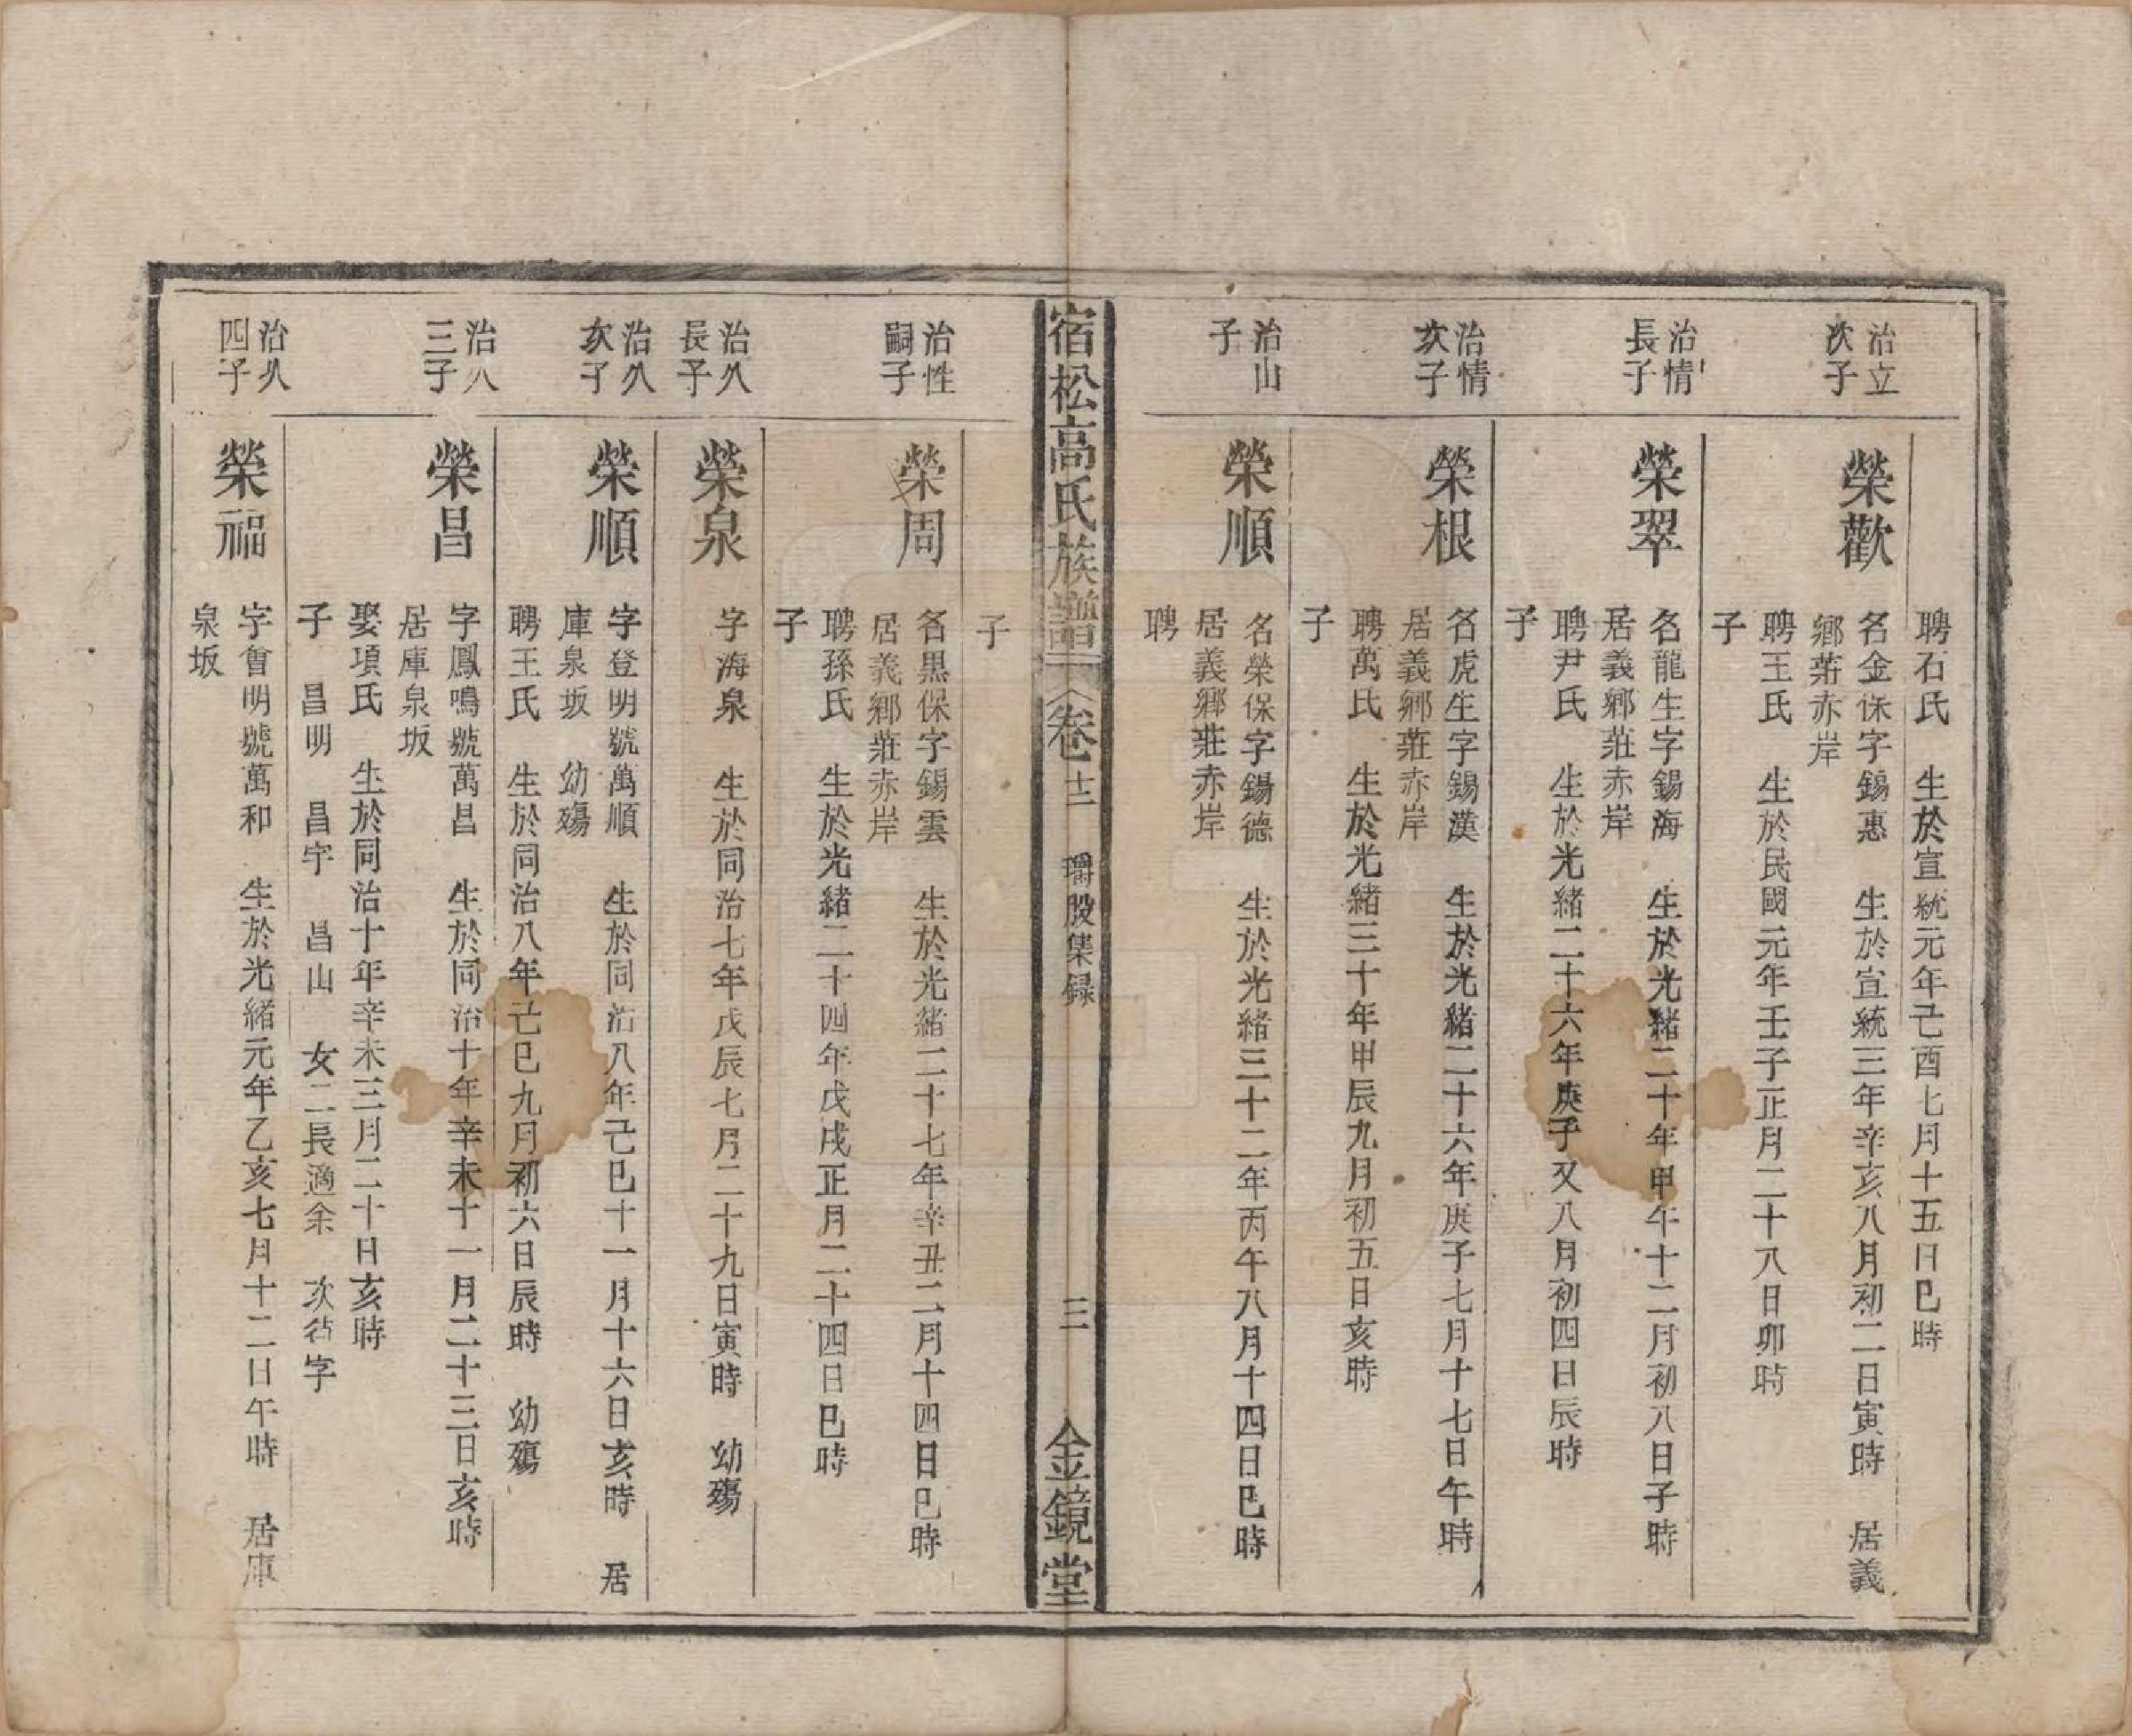 聘石氏　生於宣統元年己酉七月十五日巳時
治立次子
榮歡
名金保字錫惠　生於宣統三年辛亥八月初二日寅時　居義
鄉莊赤岸
聘王氏　生於民國元年壬子正月二十八日卯時
子
治情長子
榮翠
名龍生字錫海　生於光緒二十年甲午十二月初八日子時
居義鄉莊赤岸
聘尹氏　生於光緒二十六年庚子又八月初四日辰時
子
治情次子
榮根
名虎生字錫漢　生於光緒二十六年庚子七月十七日午時
居義鄉莊赤岸
聘萬氏　生於光緒三十年甲辰九月初五日亥時
子
治山子
榮順
名榮保字錫德　生於光緒三十二年丙午八月十四日巳時
居義鄉莊赤岸
聘
宿松高氏族譜　卷十二　璔股集録　三　金鏡堂
子
治性嗣子
榮周
名黑保字錫雲　生於光緒二十七年辛丑二月十四日巳時
居義鄉莊赤岸
聘孫氏　生於光緒二十四年戊戌正月二十四日巳時
子
治久長子
榮泉
字海泉　生於同治七年戊辰七月二十九日寅時　幼殤
治久次子
榮順
字登明號萬順　生於同治八年己巳十一月十六日亥時　居
庫泉坂　幼殤
聘王氏　生於同治八年己巳九月初六日辰時　幼殤
治久三子
榮昌
字鳳鳴號萬昌　生於同治十年辛未十一月二十三日亥時
居庫泉坂
娶項氏　生於同治十年辛未三月二十日亥時
子　昌明　昌宇　昌山　女二長適余　次待字
治久四子
榮福
字會明號萬和　生於光緒元年乙亥七月十二日午時　居庫
泉坂